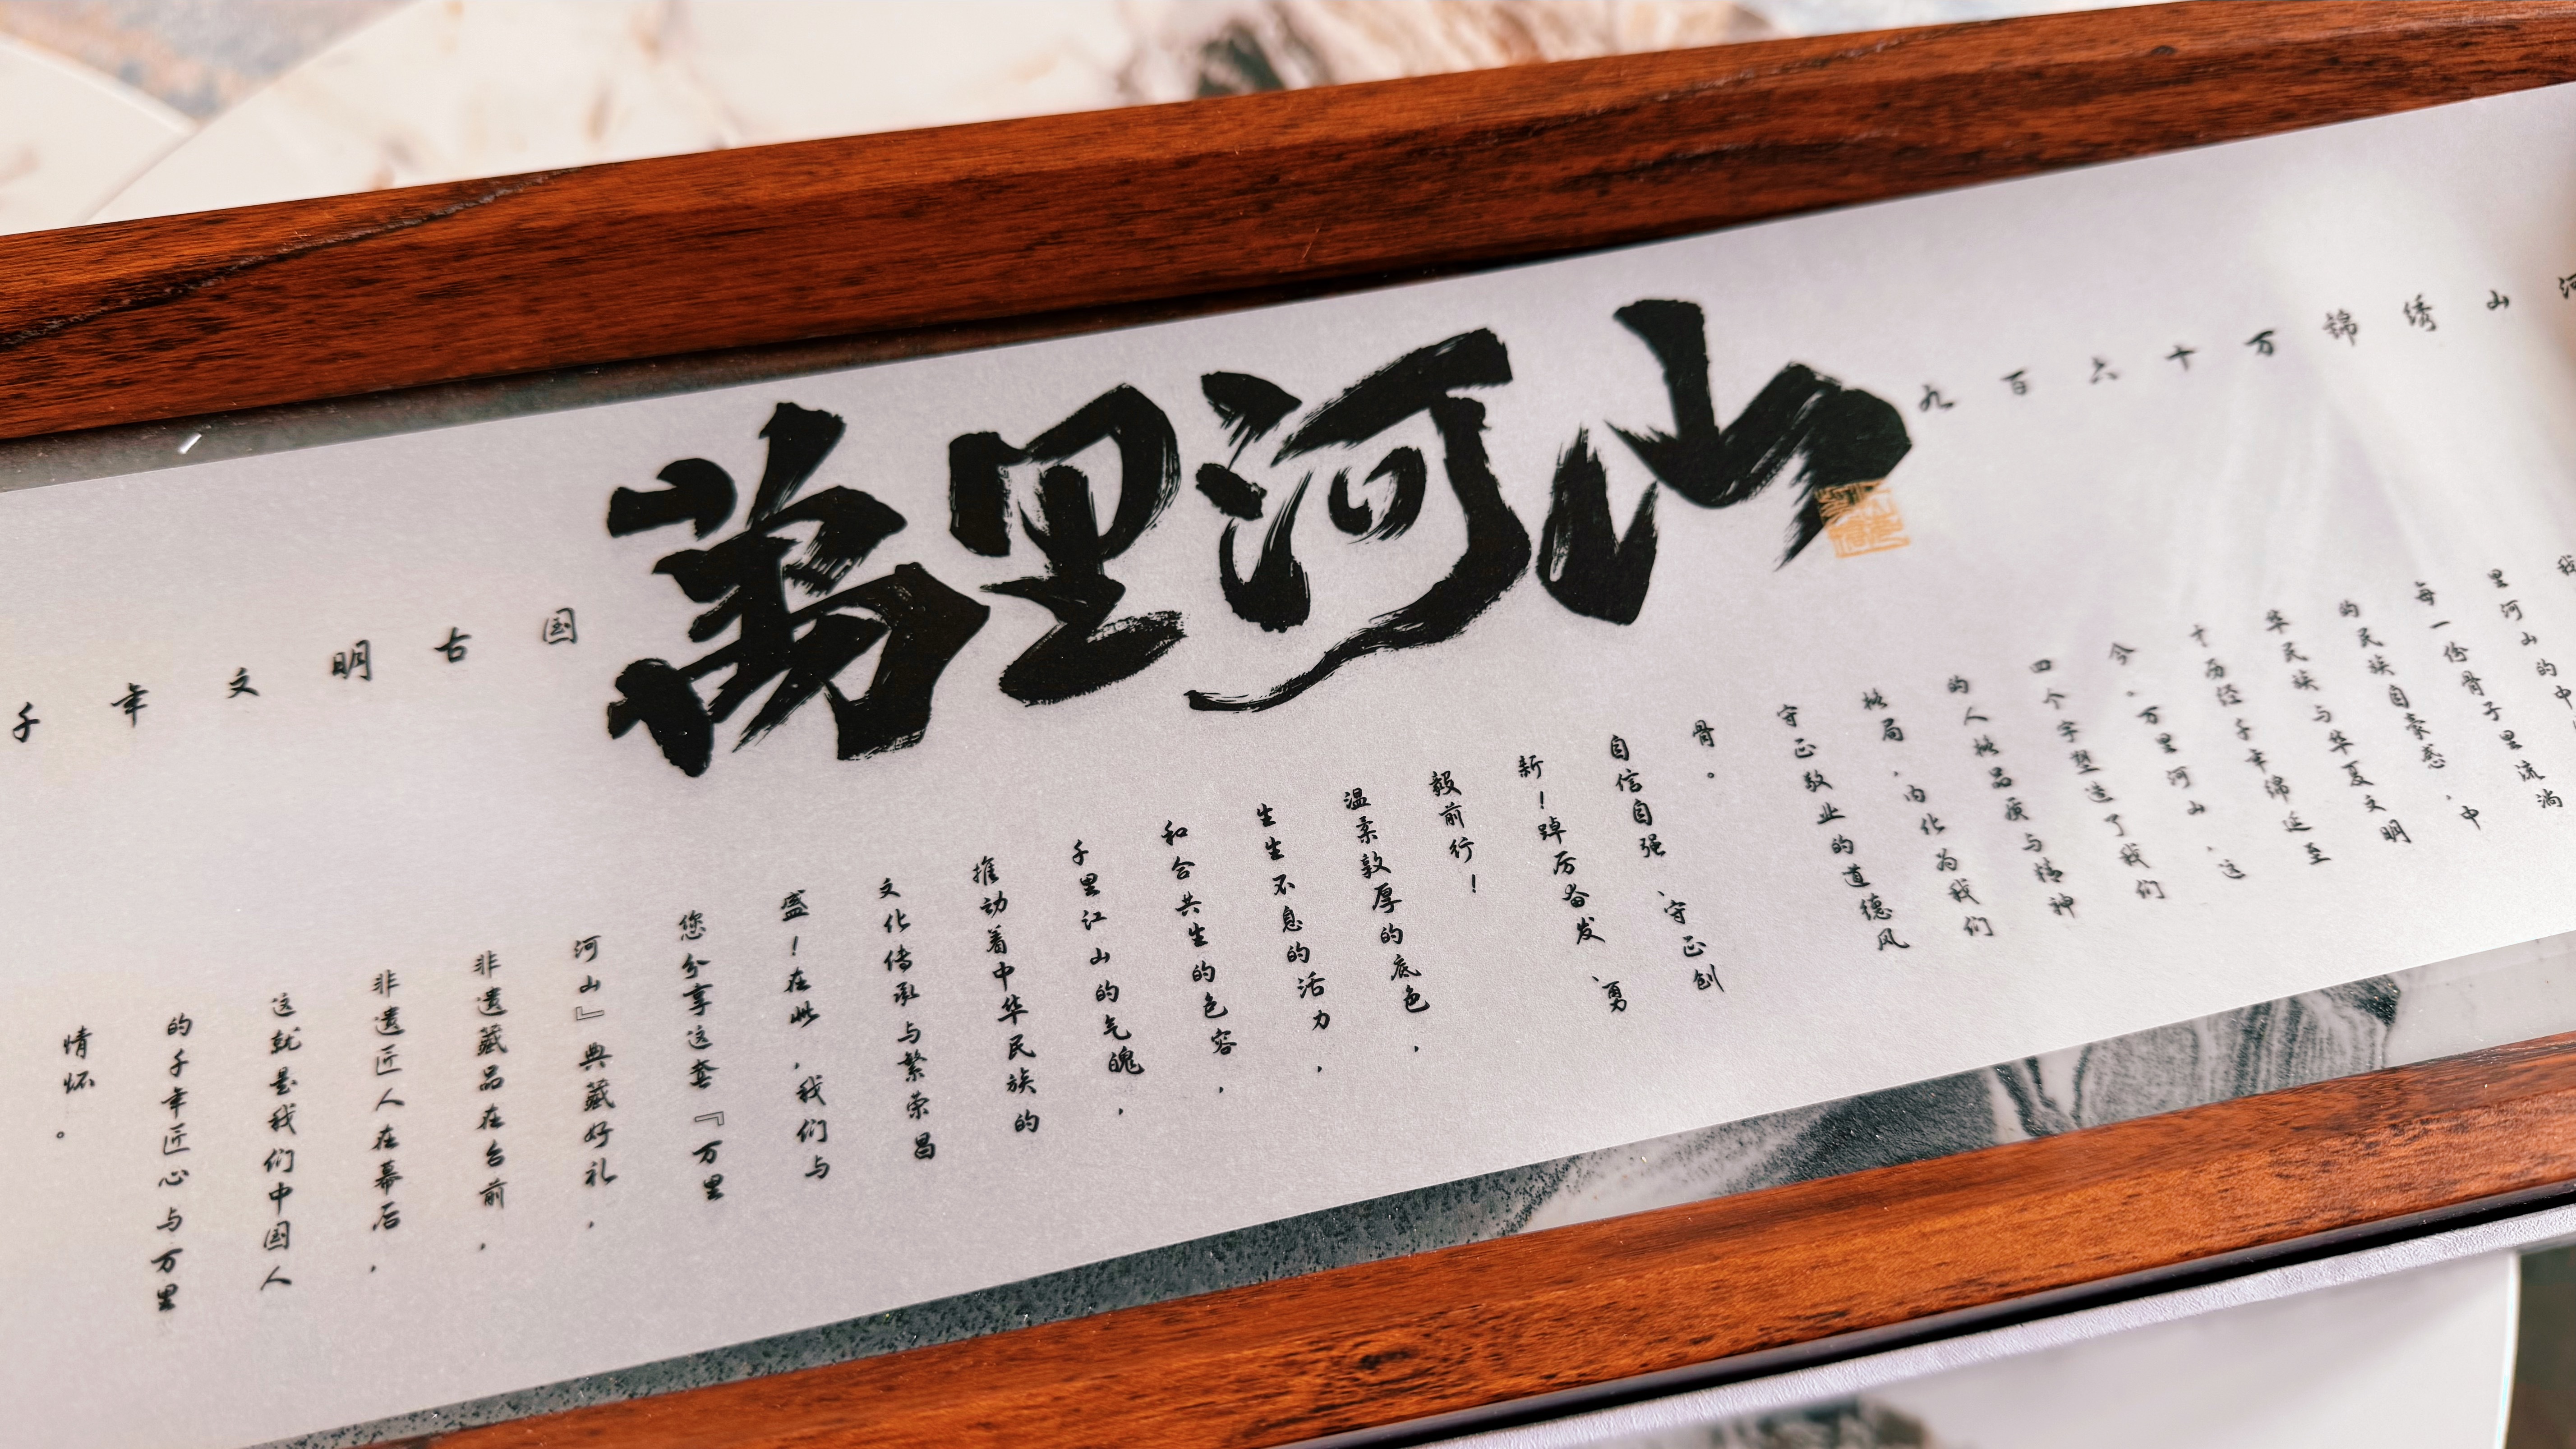 千年文明古国
萬里河山
九百六十万锦绣山河
里河山的中
每一份骨子里流淌
的民族自豪感，中
华民族与华夏文明
才历经千年绵延至
今。万里河山，这
四个字塑造了我们
的人格品质与精神
格局，内化为我们
守正敬业的道德风
骨。
自信自强、守正创
新！踔厉奋发、勇
毅前行！
温柔敦厚的底色，
生生不息的活力，
和合共生的色容，
千里江山的气魄，
推动着中华民族的
文化传承与繁荣昌
盛！在此，我们与
您分享这套『万里
河山』典藏好礼，
非遗藏品在台前，
非遗匠人在幕后，
这就是我们中国人
的千年匠心与万里
情怀。